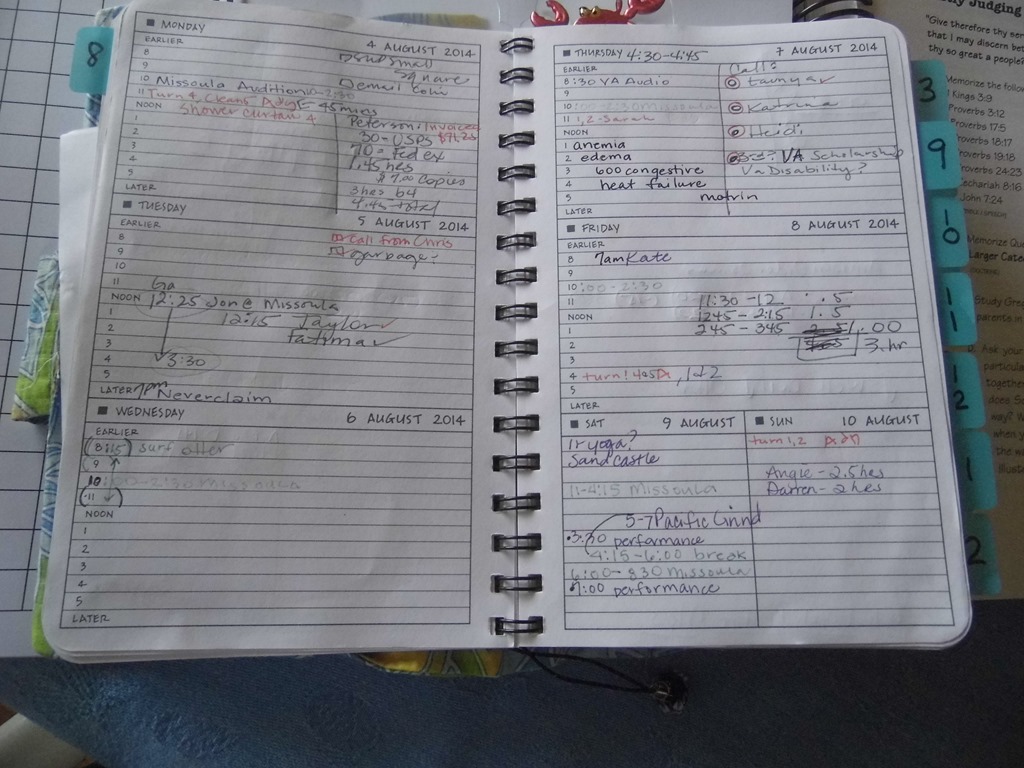 8
MONDAY
4 AUGUST 2014
EARLIER
small
8
Square
9
email
10 Missoula Audition 10-2:30
11 Turn 4,
45 mins
NOON shower curtain 4
Peterson: Invoice
1
30- USPS $71.25
2
70 = fed ex
3
1.45 hrs
4
$7.00 copies
5
3 hrs
LATER
4.45 total
TUESDAY
5 AUGUST 2014
EARLIER
8
call from Chris
9
garbage
10
11
Ga
NOON 12:25 Jon @ Missoula
1
12:15 Taylor
2
Fatima
3
4 3:30
5
LATER 7pm Neverclaim
WEDNESDAY
6 AUGUST 2014
EARLIER
8:15 surf after
9
10:00-2:30 Missoula
11
NOON
1
2
3
4
5
LATER
THURSDAY 4:30-4:45
7 AUGUST 2014
EARLIER
Call:
8:30 YA Audio
taunya
9
10:00-2:30 Missoula
Katrina
11 1,2-Sarah
NOON
Heidi
1 anemia
2 edema
VA Scholarship
3 600 congestive
VA Disability?
4 heat failure
5 motrin
LATER
FRIDAY
8 AUGUST 2014
EARLIER
8 7am Kate
9
10:00-2:30
11
11:30-12 .5
NOON
1245-2:15 1.5
1
245-345 1.00
2
3.hr
3
4 turn! 4&5A, 1of2
5
LATER
SAT
9 AUGUST
SUN
10 AUGUST
yoga?
turn 1,2
Sandcastle
Angie-2.5hrs
11-4:15 Missoula
Darren-2hrs
5-7 Pacific Grind
3:30 performance
4:15-6:00 break
6:00-830 Missoula
7:00 performance
3
9
10
11
12
1
2
Judging
"Give therefore thy ser
that I may discern bet
thy so great a people?
Memorize the follow
Kings 3:9
Proverbs 3:12
Proverbs 17:5
Proverbs 18:17
Proverbs 19:18
Proverbs 24:23
Zechariah 8:16
John 7:24
Memorize Qu
Larger Cate
Study Gre
parents in
Ask your
particula
together
does
way?
when
the w
illust